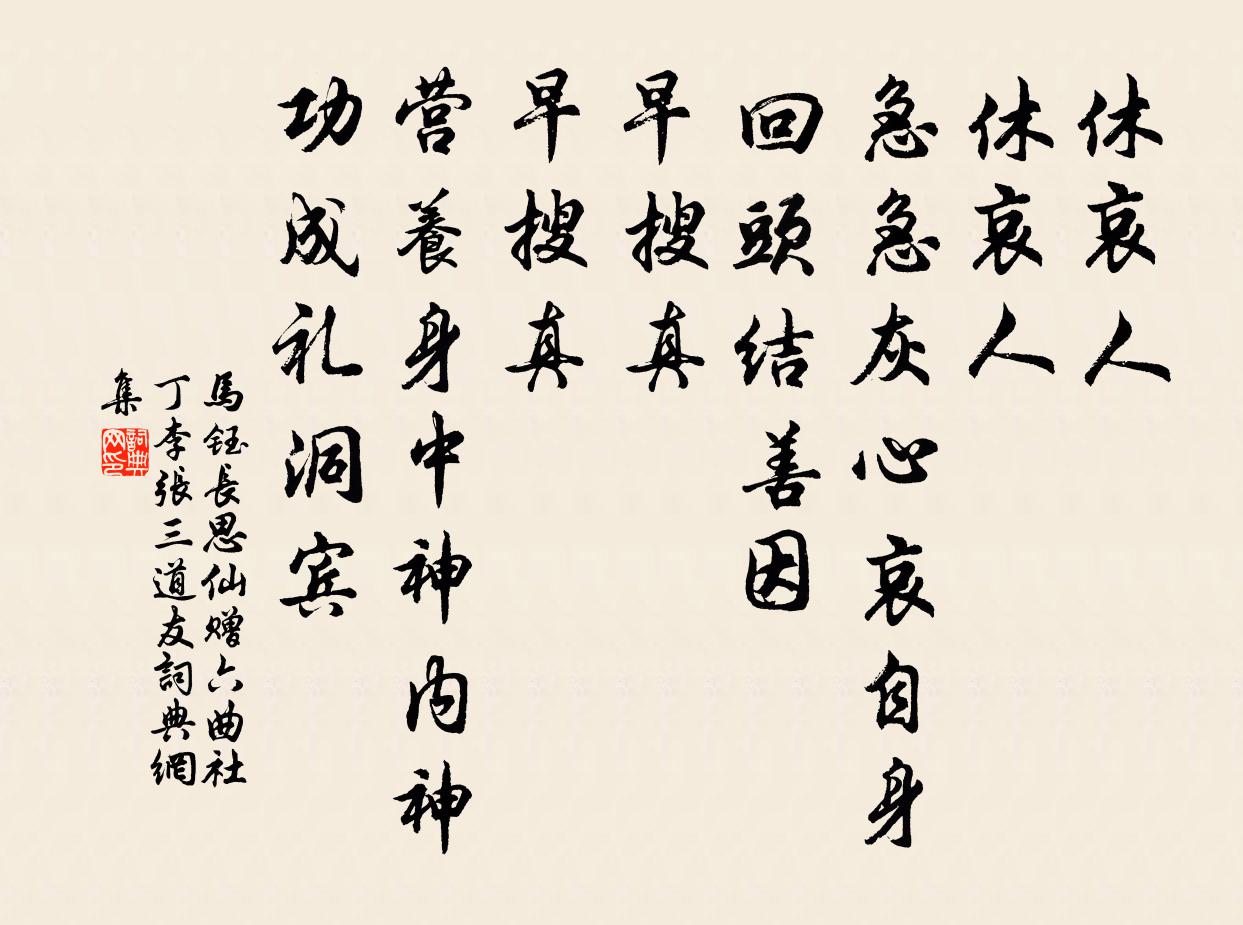 休哀人
休哀人
急急灰心哀自身
回頭结善因
早搜真
早搜真
营養身中神内神
功成礼洞宾
馬鈺長思仙赠六曲社
丁李張三道友詞典網
集
詞典
网印